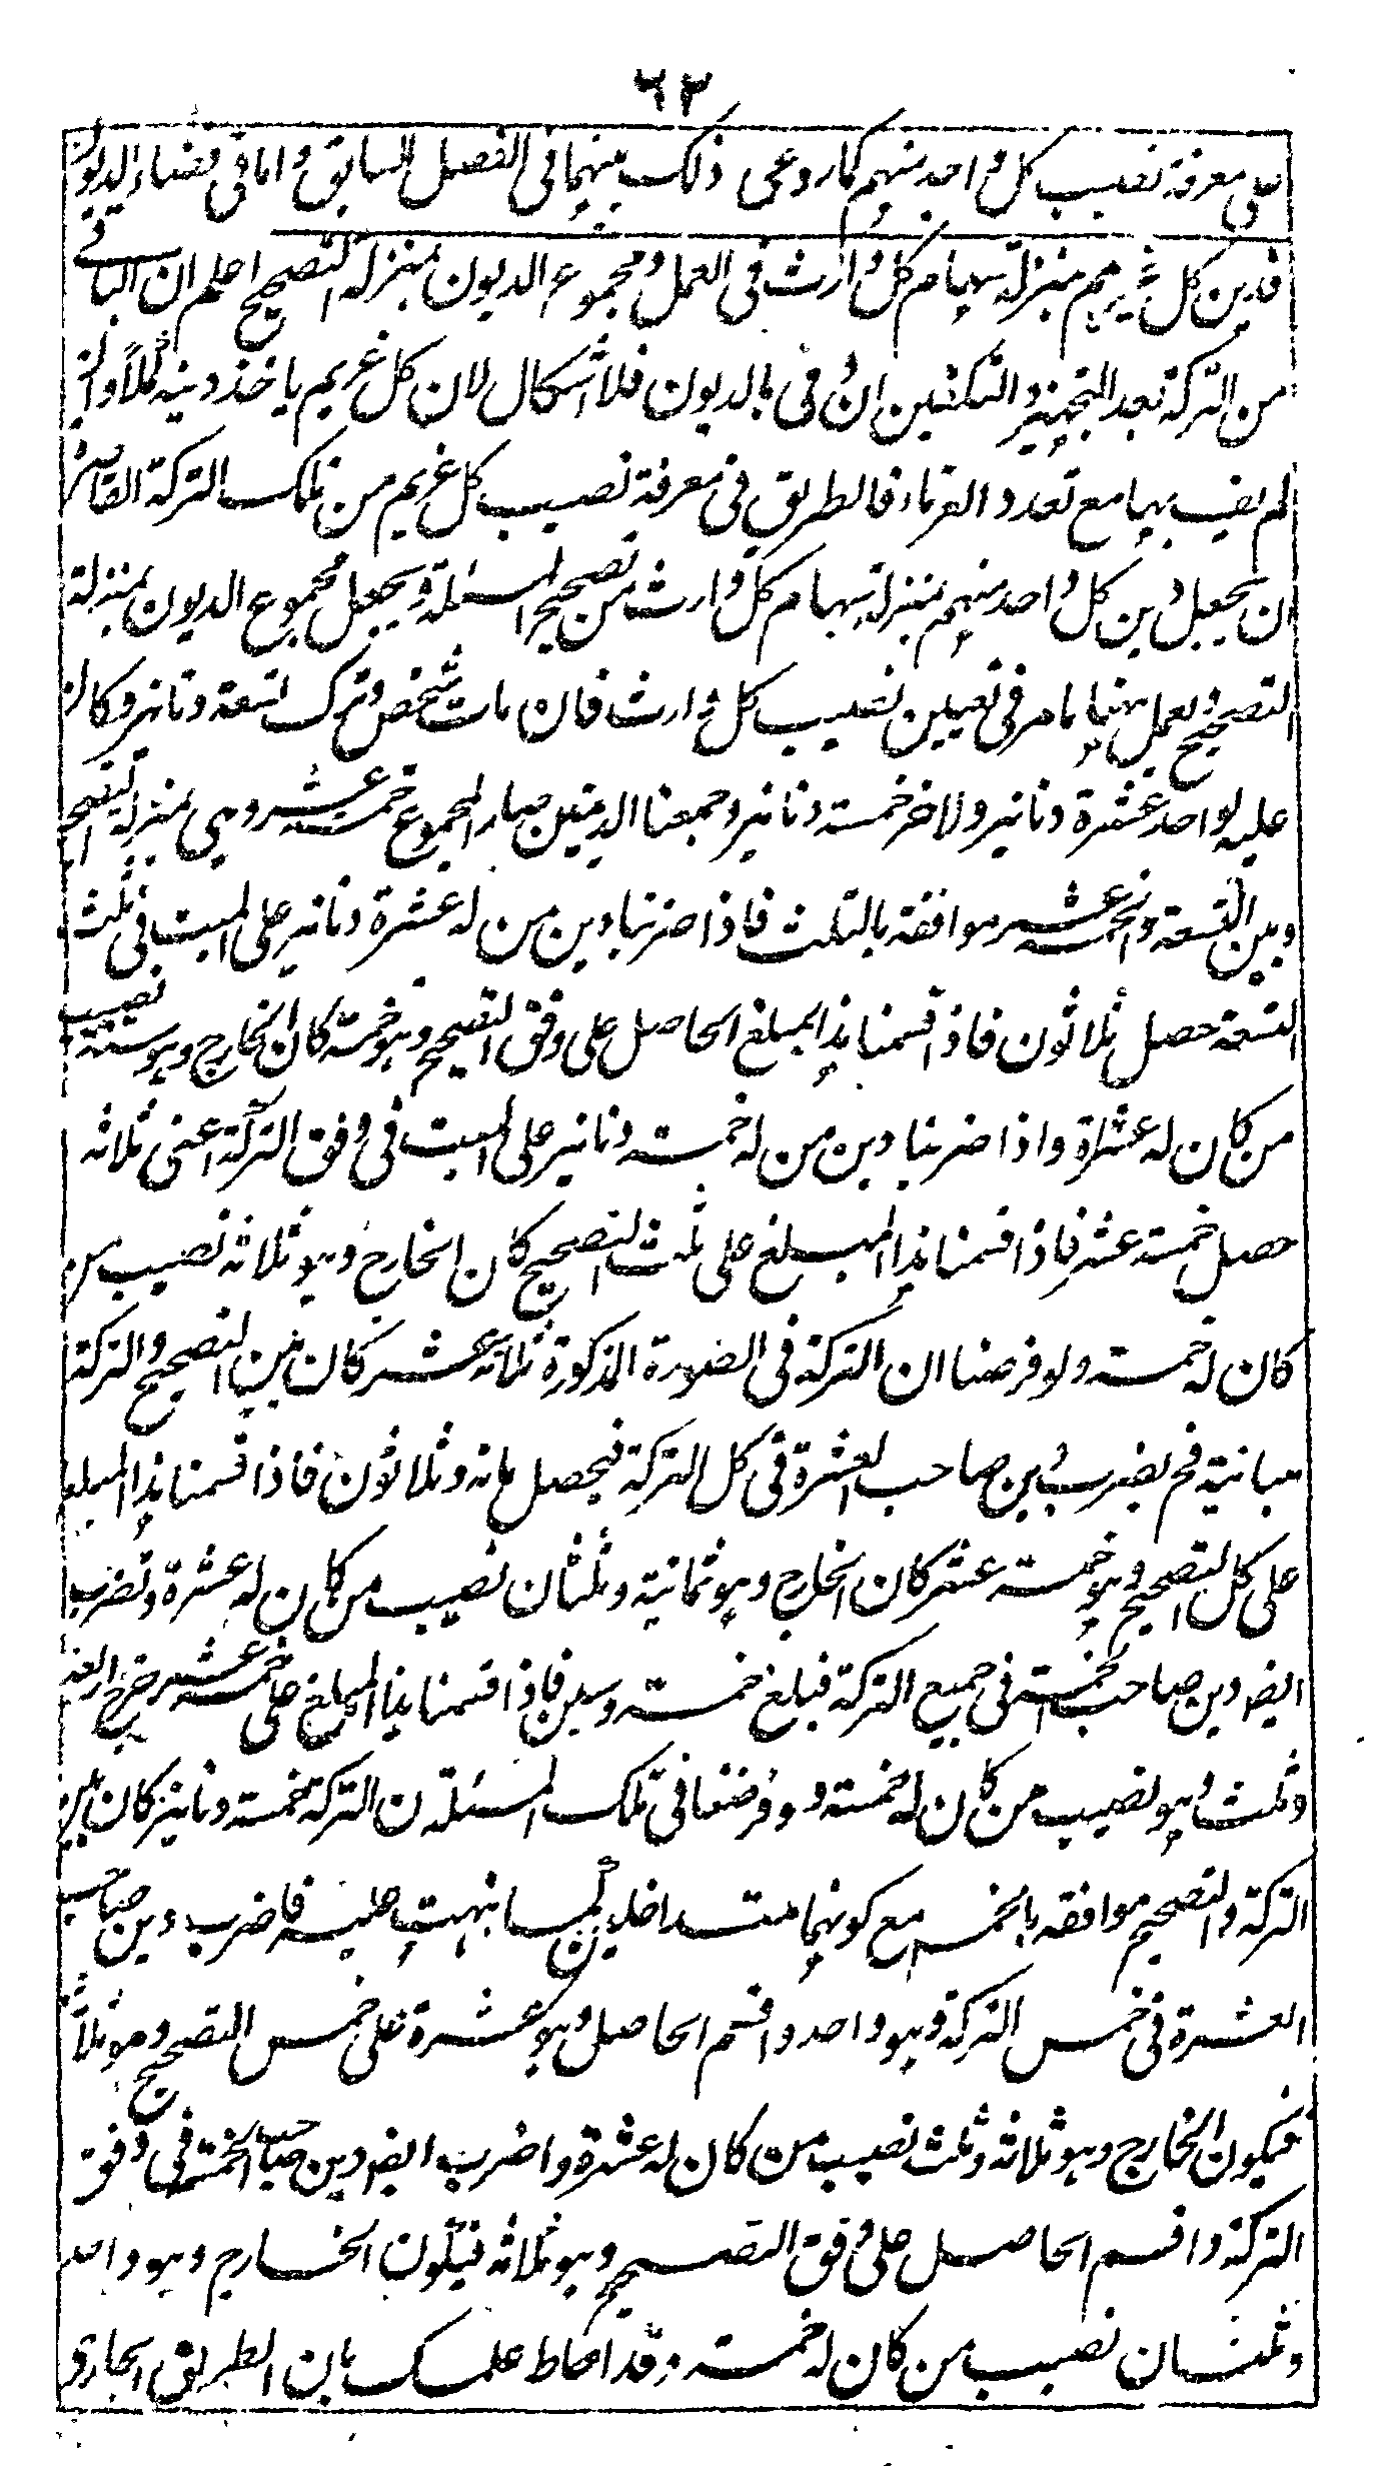 ٦٢
على معرفة نصيب كل واحد منهم كما روعى ذلك بينهما فى الفصل السابق واما فى قضاء الديون
فدين كل غريم بمنزلة سهام كل وارث فى العمل ومجموع الديون بمنزلة التصحيح اعلم ان الباقى
من التركة بعد التجهيز والتكفين ان وفى بالديون فلا اشكال لان كل غريم ياخذ دينه كملا وان
لم يف بها مع تعدد الغرماء فالطريق فى معرفة نصيب كل غريم من تلك التركة القاصرة
ان يجعل دين كل واحد منهم بمنزلة سهام كل وارث من تصحيح المسئلة ويجعل مجموع الديون بمنزلة
التصحيح ويعمل بهنا ما مر فى تعيين نصيب كل وارث فان مات شخص وترك تسعة دنانير وكان
عليه لواحد عشرة دنانير ولاخر خمسة دنانير وجمعنا الدينين صار المجموع خمسة عشر وهى بمنزلة التصحيح
وبين التسعة والخمسة عشر موافقة بالثلث فاذا ضربنا دين من له عشرة دنانير على الميت فى ثلث
التسعة حصل ثلاثون فاذا قسمنا هذا المبلغ الحاصل على وفق التصحيح وهو خمسة كان الخارج وهو ستة نصيب
من كان له عشرة واذا ضربنا دين من له خمسة دنانير على الميت فى وفق التركة اعنى ثلاثه
حصل خمسة عشر فاذا قسمنا هذا المبلغ على ثلث التصحيح كان الخارج وهو ثلاثه نصيب من
كان له خمسة ولو فرضنا ان التركة فى الصورة المذكورة ثلاثة عشر كان بين التصحيح والتركة
مباينة فح يضرب دين صاحب العشرة فى كل التركة فيحصل مائه وثلاثون فاذا قسمنا هذا المبلغ
على كل التصحيح وهو خمسة عشر كان الخارج وهو ثمانية وثلثان نصيب من كان له عشرة وتضرب
ايضا دين صاحب الخمسة فى جميع التركة فبلغ خمسة وستين فاذا قسمنا هذا المبلغ على خمسة عشر خرج اربعة
وثلث وهو نصيب من كان له خمسة ولو فرضنا فى تلك المسئلة ان التركة خمسة دنانير كان بين
التركة والتصحيح موافقه بالخمس مع كونهما متداخلين كما نبهت عليه فاضرب دين صاحب
العشرة فى خمس التركة وهو واحد واقسم الحاصل وهو عشرة على خمس التصحيح وهو ثلاثة
فيكون الخارج وهو ثلاثه وثلث نصيب من كان له عشرة واضرب ايضا دين صاحب الخمسة فى وفق
التركة واقسم الحاصل على وفق التصحيح وهو ثلاثه فيكون الخارج وهو واحد
وثلثان نصيب من كان له خمسة وقد احاط علمك بان الطريق الجارى